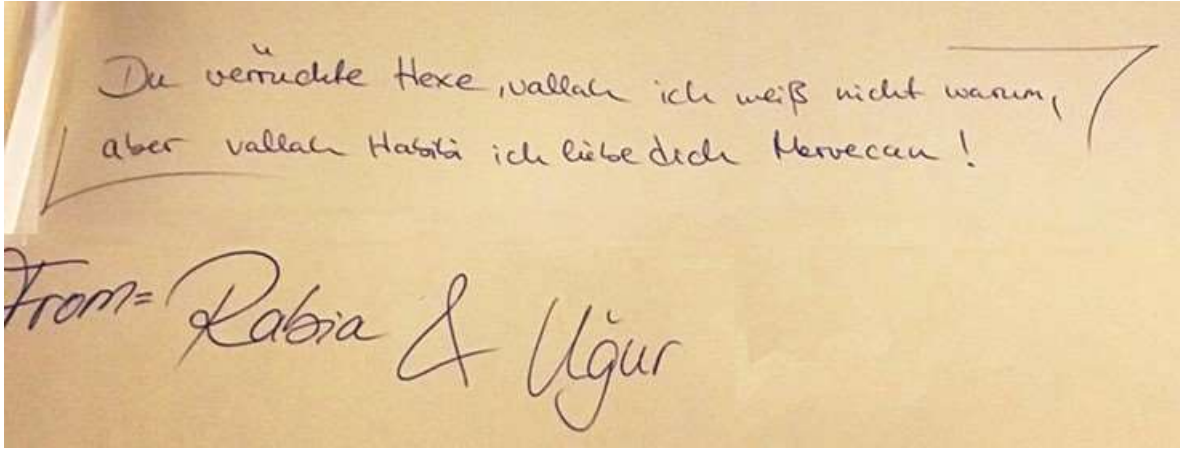 Du verrückte Hexe, vallah ich weiß nicht warum,
aber vallah Habibi ich liebe dich Mervecan!
From= Rabia & Uğur